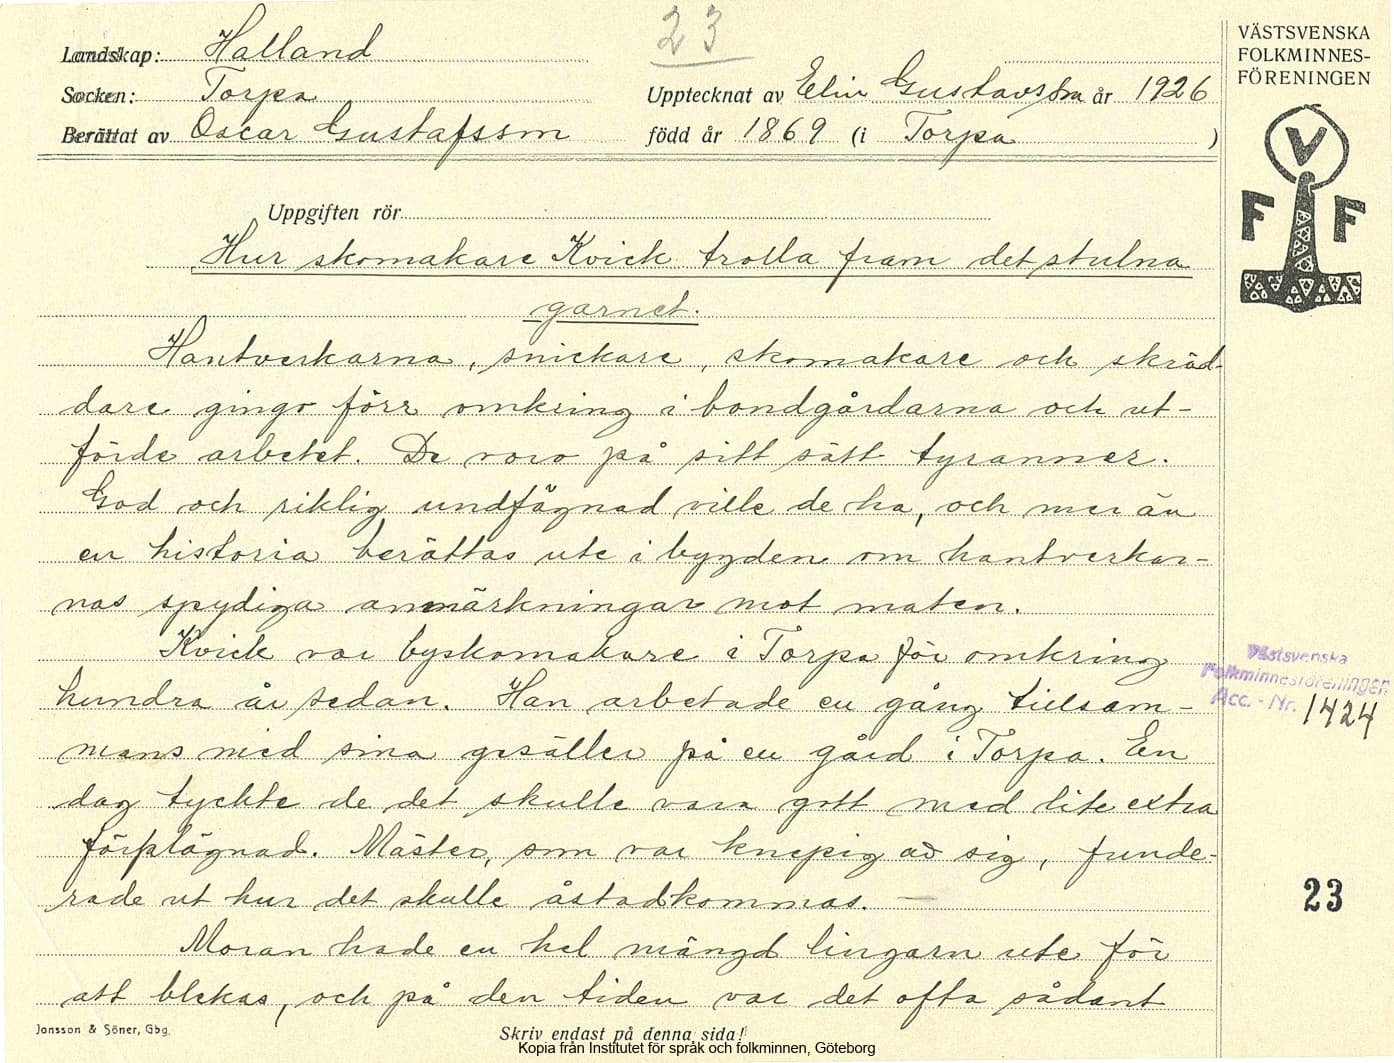 23
Landskap: Halland
Socken: Torpa
Upptecknat av Elin Gustavsson år 1926
Berättat av Oscar Gustafsson född år 1869 (i Torpa )
VÄSTSVENSKA
FOLKMINNES-
FÖRENINGEN
V
F F
Uppgiften rör
Hur skomakare Kvick trolla fram det stulna
garnet.
Hantverkarna, snickare, skomakare och skräd-
dare gingo förr omkring i bondgårdarna och ut-
förde arbetet. De voro på sitt sätt tyranner.
God och riklig undfägnad ville de ha, och mer än
en historia berättas ute i bygden om hantverkar-
nas spydiga anmärkningar mot maten.
Kvick var byskomakare i Torpa för omkring
hundra år sedan. Han arbetade en gång tillsam-
mans med sina gesäller på en gård i Torpa. En
dag tyckte de det skulle vara gott med lite extra
förplägnad. Mäster, som var knepig av sig, funde-
rade ut hur det skulle åstadkommas.
Moran hade en hel mängd lingarn ute för
att blekas, och på den tiden var det ofta sådant
Västsvenska
Folkminnesföreningen
Acc. - Nr. 1424
23
Jonsson & Söner, Gbg.
Skriv endast på denna sida!
Kopia från Institutet för språk och folkminnen, Göteborg